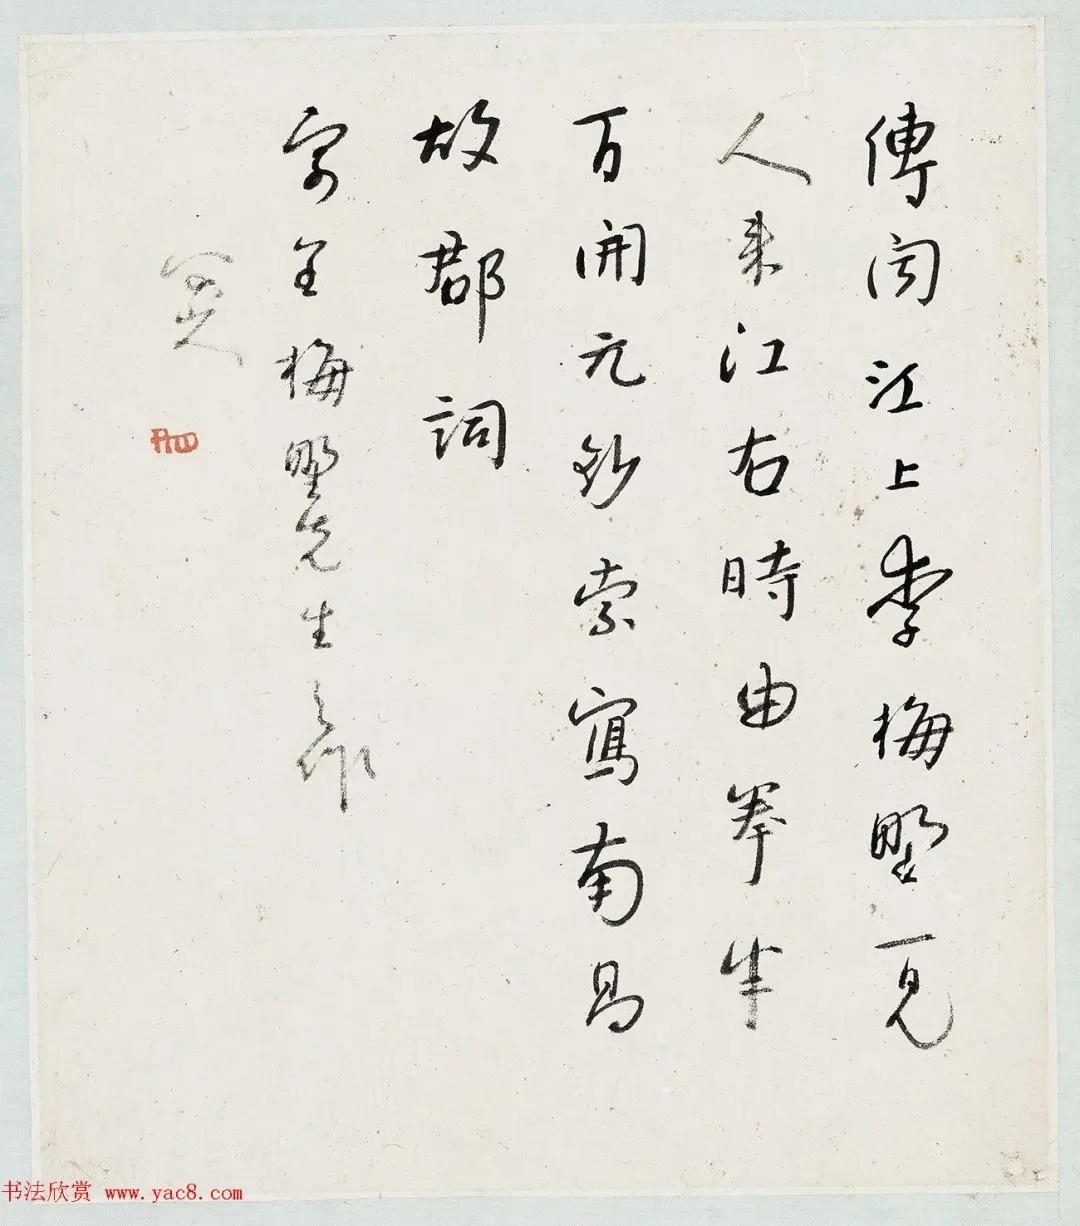 傳聞江上李梅野一見
人來江右時由拳半
百開元鈔索寫南昌
故郡詞
寄呈梅野先生之作
八大山人
书法欣赏 www.yac8.com